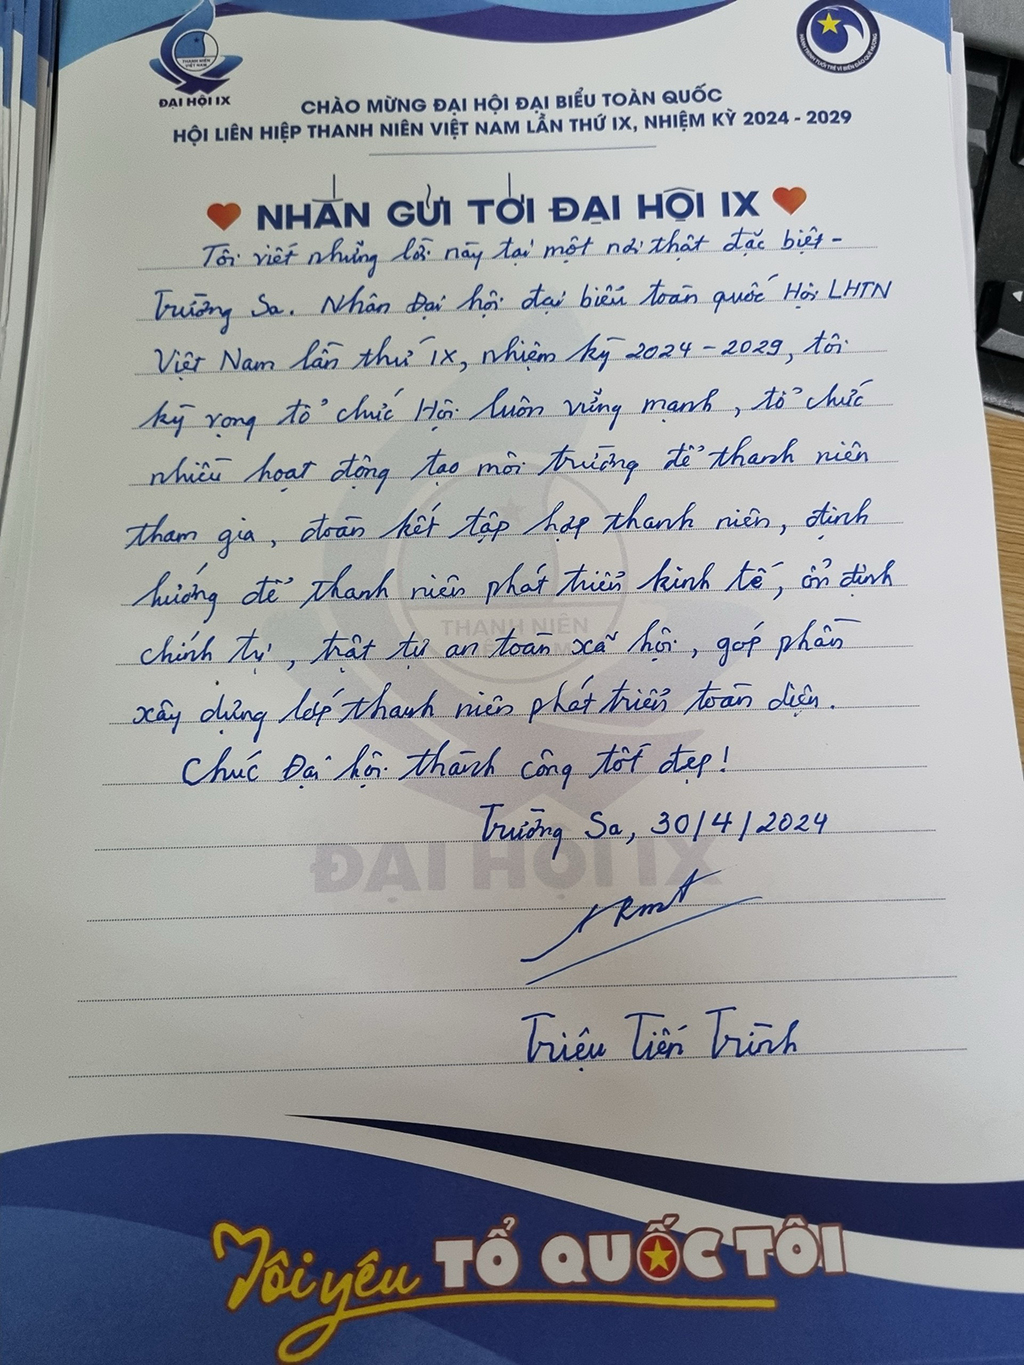 THANH NIÊN
VIỆT NAM
ĐẠI HỘI IX
HÀNH TRÌNH TUỔI TRẺ VÌ BIỂN ĐẢO QUÊ HƯƠNG
CHÀO MỪNG ĐẠI HỘI ĐẠI BIỂU TOÀN QUỐC
HỘI LIÊN HIỆP THANH NIÊN VIỆT NAM LẦN THỨ IX, NHIỆM KỲ 2024 - 2029
NHẮN GỬI TỚI ĐẠI HỘI IX
Tôi viết những lời này tại một nơi thật đặc biệt -
Trường Sa. Nhân Đại hội đại biểu toàn quốc Hội LHTN
Việt Nam lần thứ IX, nhiệm kỳ 2024 - 2029, tôi
kỳ vọng tổ chức Hội luôn vững mạnh, tổ chức
nhiều hoạt động tạo môi trường để thanh niên
tham gia, đoàn kết tập hợp thanh niên, định
hướng để thanh niên phát triển kinh tế, ổn định
chính trị, trật tự an toàn xã hội, góp phần
xây dựng lớp thanh niên phát triển toàn diện.
Chúc Đại hội thành công tốt đẹp!
Trường Sa, 30/4/2024
Triệu Tiến Trình
THANH NIÊN
ĐẠI HỘI IX
Tôi yêu TỔ QUỐC TÔI